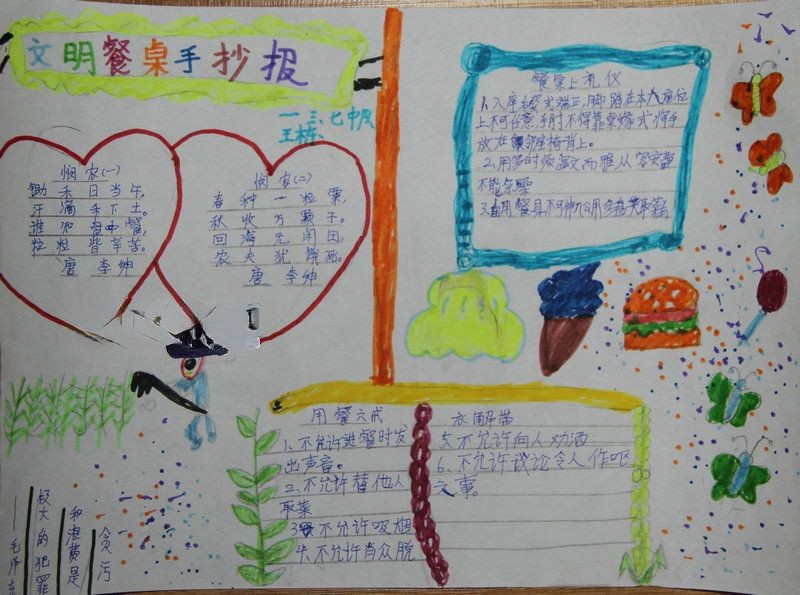 文明餐桌手抄报
一.三.七中队
王栋
悯农(一)
锄禾日当午,
汗滴禾下土。
谁知盘中餐,
粒粒皆辛苦。
唐 李绅
悯农(二)
春种一粒粟,
秋收万颗子。
四海无闲田,
农夫犹饿死。
唐 李绅
餐桌上礼仪
1.入座右姿式端正,脚踏在本人座位
上不可任意,手肘不得靠桌缘,或将手
放在邻座椅背上。
2.用多时须温文而雅从容安静
不能急躁
3.自用餐具不可伸入公用
用餐六戒
1、不允许进餐时发
出声音。
2、不允许替他人
取菜
3、不允许吸烟
4、不允许当众脱
衣解带
5、不允许向人劝酒
6、不允许议论令人作呕
之事。
贪污
和浪费是
极大的犯罪
——毛泽东